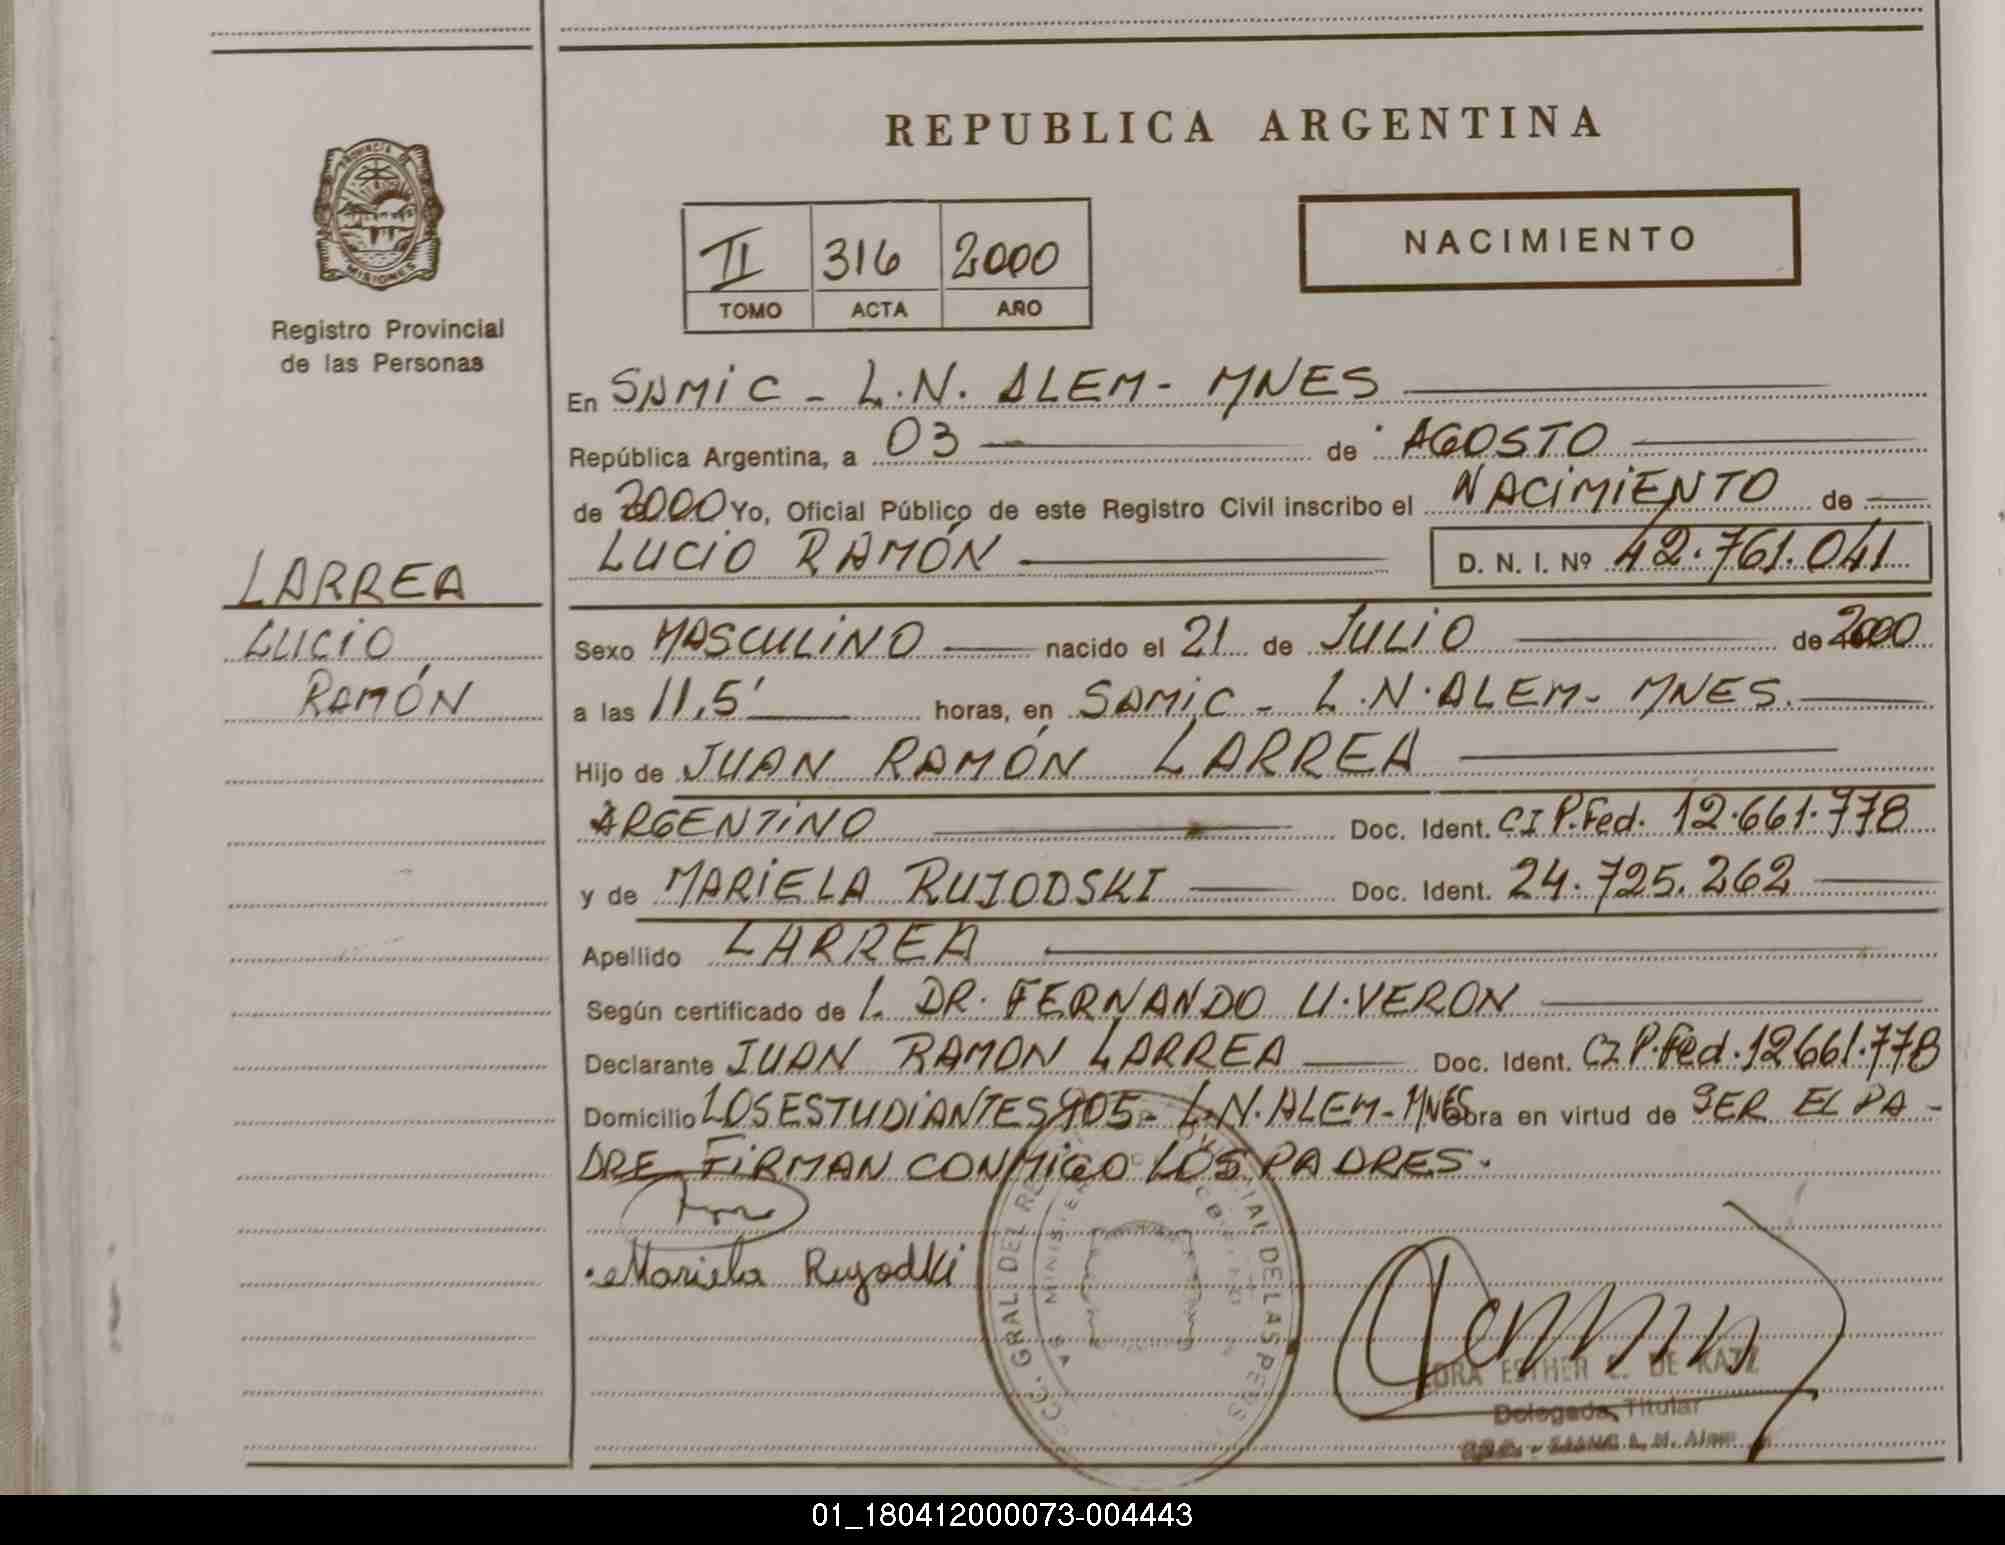 REPUBLICA ARGENTINA
PROVINCIA DE
MISIONES
Registro Provincial
de las Personas
II 316 2000
TOMO ACTA AÑO
NACIMIENTO
En SAMIC - L.N. ALEM - MNES
República Argentina, a 03 de AGOSTO
de 2000 Yo, Oficial Público de este Registro Civil inscribo el NACIMIENTO de
LUCIO RAMÓN D. N. I. Nº 42.761.041
LARREA
LUCIO
RAMÓN
Sexo MASCULINO nacido el 21 de JULIO de 2000
a las 11,5' horas, en SAMIC - L.N. ALEM - MNES.
Hijo de JUAN RAMÓN LARREA
ARGENTINO Doc. Ident. CI P.Fed. 12.661.778
y de MARIELA RUJODSKI Doc. Ident. 24.725.262
Apellido LARREA
Según certificado de l. DR. FERNANDO U. VERON
Declarante JUAN RAMON LARREA Doc. Ident. CI P.Fed. 12661.778
Domicilio LOS ESTUDIANTES 105 - L.N. ALEM - MNES obra en virtud de SER EL PA-
DRE FIRMAN CONMIGO LOS PADRES.
Mariela Ruyodki
GRAL DEL DE LAS PERS
ESTHER DE KATZ
Delegada Titular
01_180412000073-004443